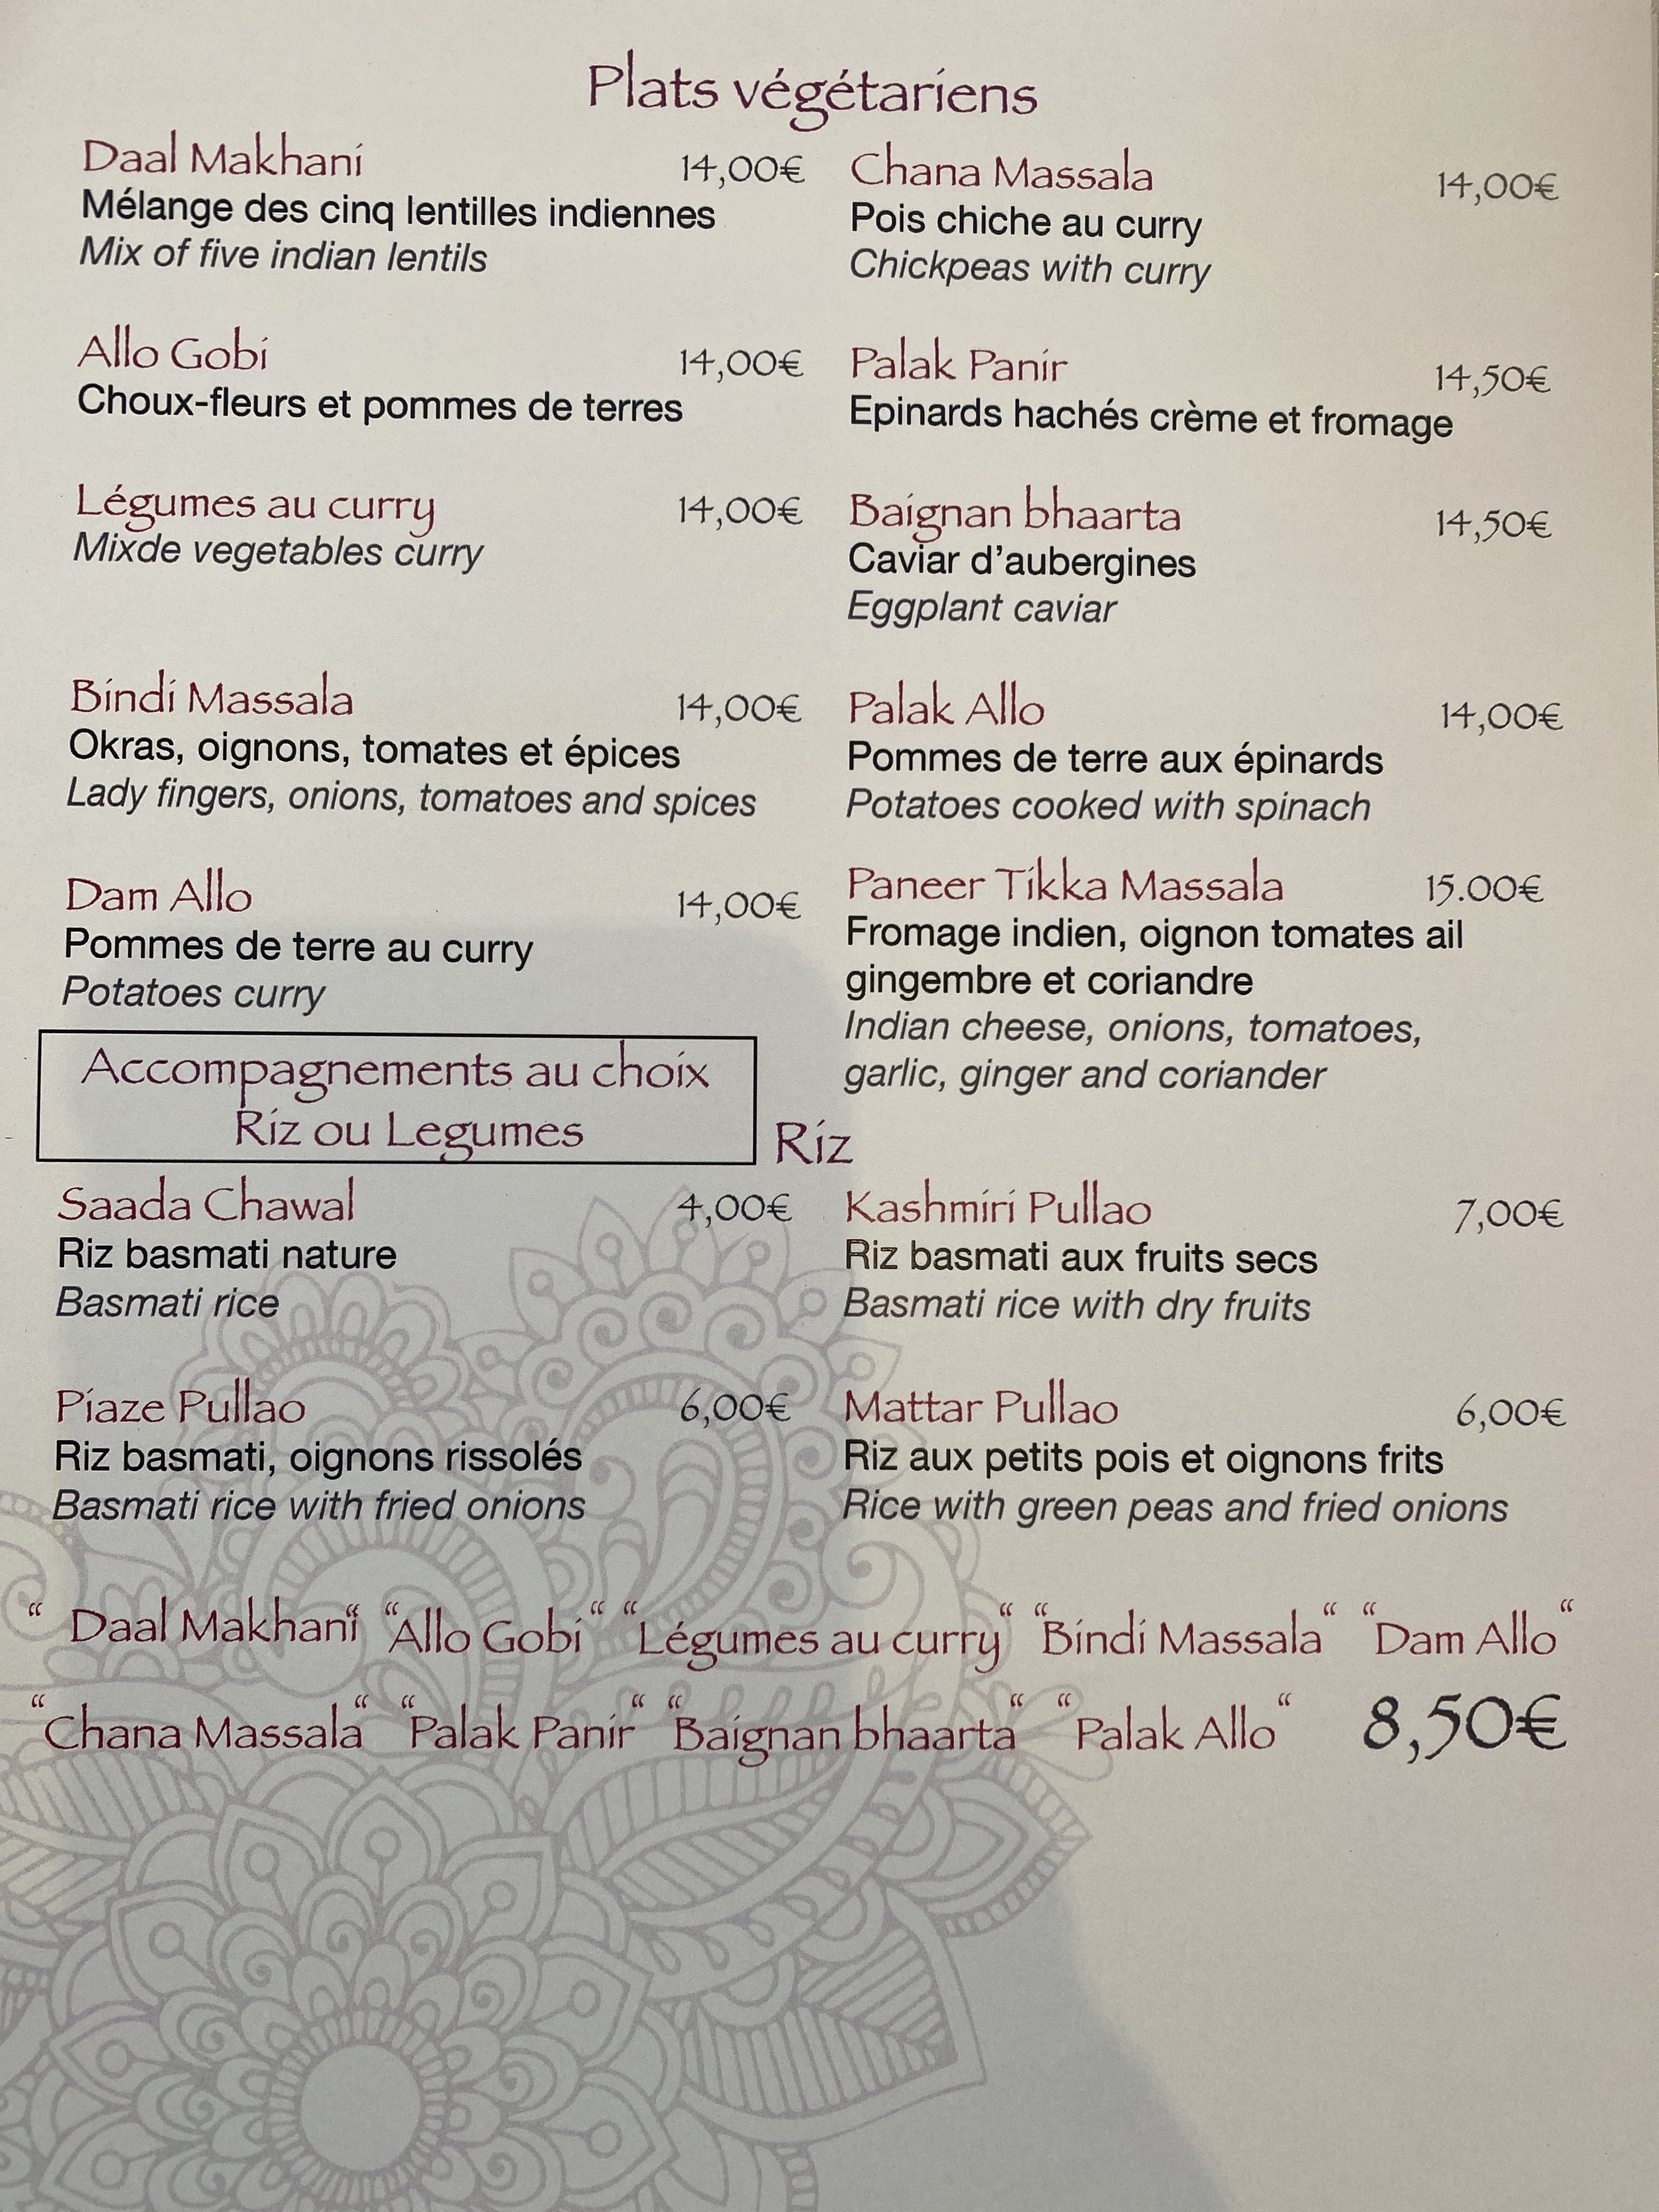 Plats végétariens
Daal Makhani 14,00€
Mélange des cinq lentilles indiennes
Mix of five indian lentils
Allo Gobi 14,00€
Choux-fleurs et pommes de terres
Légumes au curry 14,00€
Mixde vegetables curry
Bindi Massala 14,00€
Okras, oignons, tomates et épices
Lady fingers, onions, tomatoes and spices
Dam Allo 14,00€
Pommes de terre au curry
Potatoes curry
Chana Massala 14,00€
Pois chiche au curry
Chickpeas with curry
Palak Panir 14,50€
Epinards hachés crème et fromage
Baignan bhaarta 14,50€
Caviar d’aubergines
Eggplant caviar
Palak Allo 14,00€
Pommes de terre aux épinards
Potatoes cooked with spinach
Paneer Tikka Massala 15.00€
Fromage indien, oignon tomates ail
gingembre et coriandre
Indian cheese, onions, tomatoes,
garlic, ginger and coriander
Accompagnements au choix
Riz ou Legumes
Riz
Saada Chawal 4,00€
Riz basmati nature
Basmati rice
Piaze Pullao 6,00€
Riz basmati, oignons rissolés
Basmati rice with fried onions
Kashmiri Pullao 7,00€
Riz basmati aux fruits secs
Basmati rice with dry fruits
Mattar Pullao 6,00€
Riz aux petits pois et oignons frits
Rice with green peas and fried onions
“ Daal Makhani“ “Allo Gobi“ “Légumes au curry“ “Bindi Massala“ “Dam Allo“
“Chana Massala“ “Palak Panir“ “Baignan bhaarta“ “Palak Allo“ 8,50€